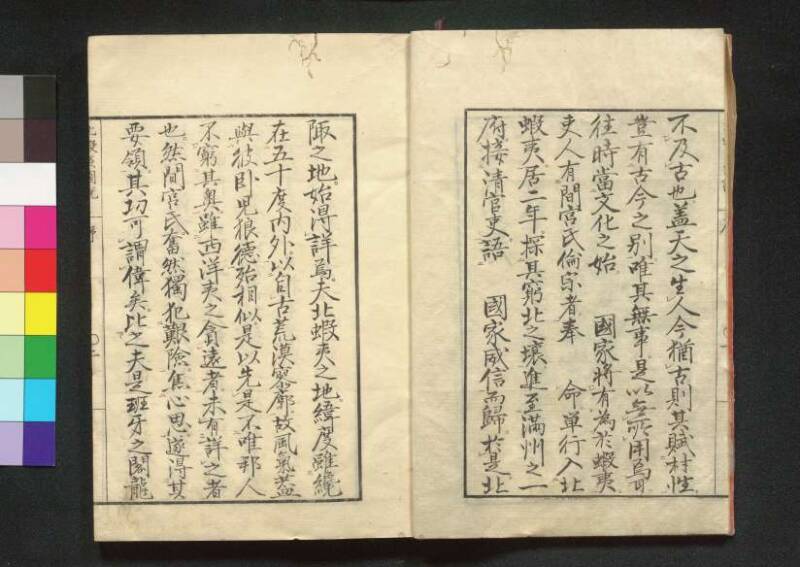 不及古也蓋天之生人今猶古則其賦材性
豈有古今之別唯其無事是以無所用焉耳
往時當文化之始　國家將有為於蝦夷
吏人有間宮氏倫宗者奉　命單行入北
蝦夷居二年探其窮北之壤進至滿州之一
府接清官吏語　國家威信而歸於是北
陬之地始得詳焉夫北蝦夷之地緯度雖纔
在五十度內外以自古荒漠寥廓故風氣蓋
與彼卧兒狼德殆相似是以先是不唯邦人
不窮其奧雖西洋夷之貪遠者未有詳之者
也然間宮氏奮然獨犯艱險焦心思遂得其
要領其功可謂偉矣比之夫是班牙之閣龍